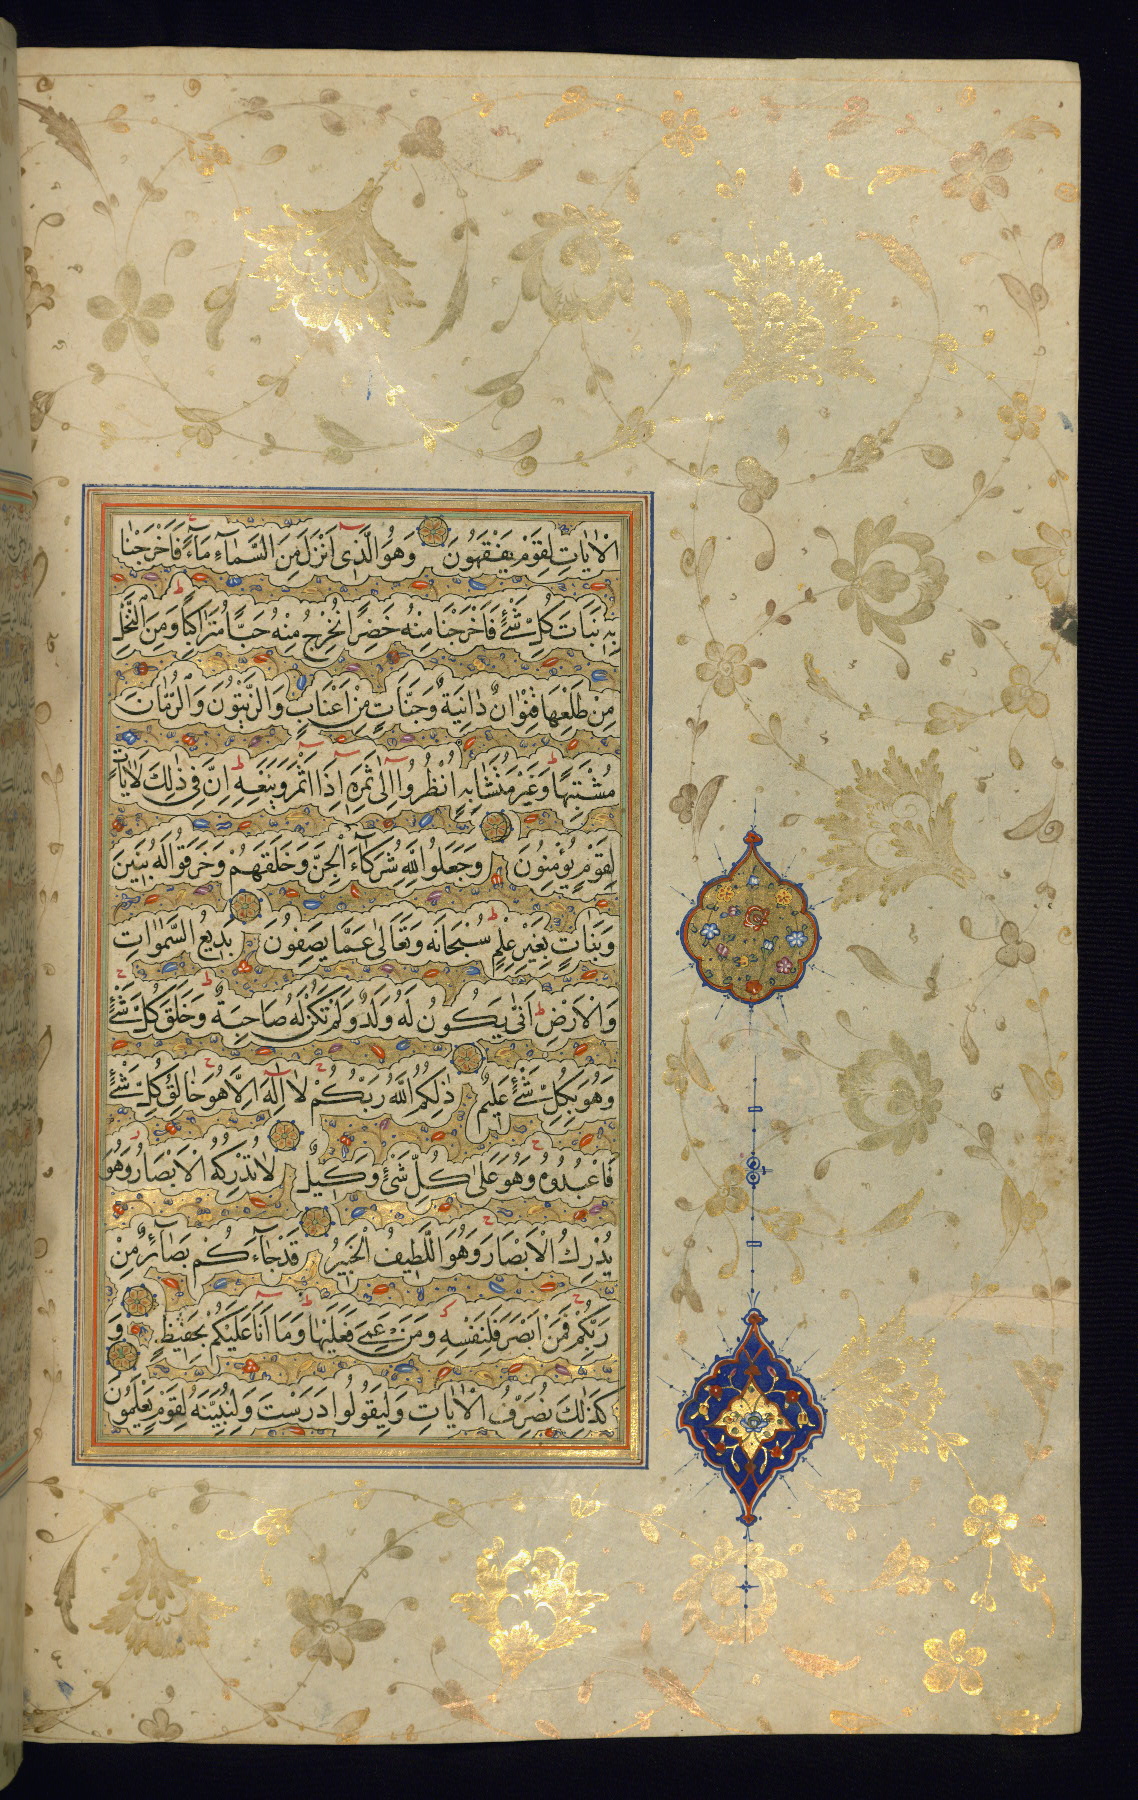 الْاٰيَاتِ لِقَوْمٍ يَفْقَهُونَ وَهُوَ الَّذِى اَنْزَلَ مِنَ السَّمَاۤءِ مَاۤءً فَاَخْرَجْنَا
بِهِ نَبَاتَ كُلِّ شَىْءٍ فَاَخْرَجْنَا مِنْهُ خَضِرًا نُخْرِجُ مِنْهُ حَبًّا مُتَرَاكِبًا وَمِنَ النَّخْلِ
مِنْ طَلْعِهَا قِنْوَانٌ دَانِيَةٌ وَجَنَّاتٍ مِنْ اَعْنَابٍ وَالزَّيْتُونَ وَالرُّمَّانَ
مُشْتَبِهًا وَغَيْرَ مُتَشَابِهٍ اُنْظُرُوا اِلٰى ثَمَرِهِ اِذَا اَثْمَرَ وَيَنْعِهِ اِنَّ فِى ذٰلِكَ لَاٰيَاتٍ
لِقَوْمٍ يُؤْمِنُونَ وَجَعَلُوا لِلّٰهِ شُرَكَاۤءَ الْجِنَّ وَخَلَقَهُمْ وَخَرَقُوا لَهُ بَنِينَ
وَبَنَاتٍ بِغَيْرِ عِلْمٍ سُبْحَانَهُ وَتَعَالٰى عَمَّا يَصِفُونَ بَدِيعُ السَّمٰوَاتِ
وَالْاَرْضِ اَنّٰى يَكُونُ لَهُ وَلَدٌ وَلَمْ تَكُنْ لَهُ صَاحِبَةٌ وَخَلَقَ كُلَّ شَىْءٍ
وَهُوَ بِكُلِّ شَىْءٍ عَلِيمٌ ذٰلِكُمُ اللّٰهُ رَبُّكُمْ لَا اِلٰهَ اِلَّا هُوَ خَالِقُ كُلِّ شَىْءٍ
فَاعْبُدُوهُ وَهُوَ عَلٰى كُلِّ شَىْءٍ وَكِيلٌ لَا تُدْرِكُهُ الْاَبْصَارُ وَهُوَ
يُدْرِكُ الْاَبْصَارَ وَهُوَ اللَّطِيفُ الْخَبِيرُ قَدْ جَاۤءَكُمْ بَصَاۤئِرُ مِنْ
رَبِّكُمْ فَمَنْ اَبْصَرَ فَلِنَفْسِهِ وَمَنْ عَمِىَ فَعَلَيْهَا وَمَا اَنَا عَلَيْكُمْ بِحَفِيظٍ وَ
كَذٰلِكَ نُصَرِّفُ الْاٰيَاتِ وَلِيَقُولُوا دَرَسْتَ وَلِنُبَيِّنَهُ لِقَوْمٍ يَعْلَمُونَ